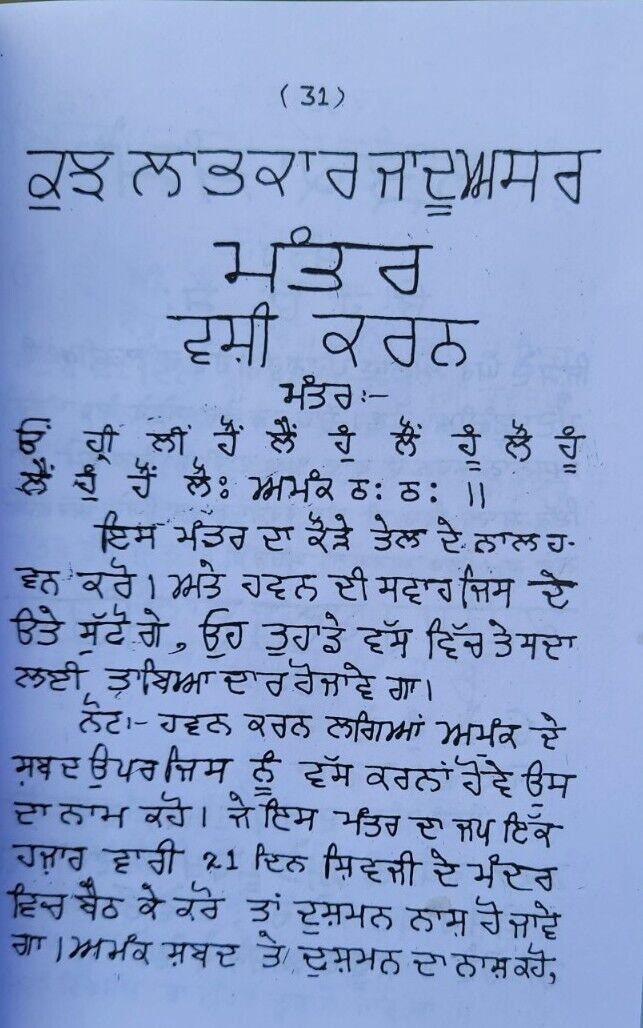 (31)
ਕੁਝ ਲਾਭਕਾਰ ਜਾਦੂਅਸਰ
ਮੰਤਰ
ਵਸ਼ੀ ਕਰਨ
ਮੰਤਰ:-
ਓਂ ਹ੍ਰੀਂ ਲੀਂ ਹੌਂ ਲੌਂ ਹੁੰ ਲੌਂ ਹੂੰ ਲੌ ਹੂੰ
ਲੌਂ ਹੁੰ ਹੌਂ ਲੌਃ ਅਮੰਕ ਠ: ਠ: ॥
ਇਸ ਮੰਤਰ ਦਾ ਕੌੜੇ ਤੇਲ ਦੇ ਨਾਲ ਹ-
ਵਨ ਕਰੋ। ਅਤੇ ਹਵਨ ਦੀ ਸਵਾਹ ਜਿਸ ਦੇ
ਉਤੇ ਸੁੱਟੋ ਗੇ, ਉਹ ਤੁਹਾਡੇ ਵੱਸ ਵਿੱਚ ਤੇ ਸਦਾ
ਲਈ ਤਾਬਿਆ ਦਾਰ ਹੋ ਜਾਵੇ ਗਾ।
ਨੋਟ:- ਹਵਨ ਕਰਨ ਲਗਿਆਂ ਅਮੁੰਕ ਦੇ
ਸ਼ਬਦ ਉਪਰ ਜਿਸ ਨੂੰ ਵੱਸ ਕਰਨਾਂ ਹੋਵੇ ਉਸ
ਦਾ ਨਾਮ ਕਹੋ। ਜੇ ਇਸ ਮੰਤਰ ਦਾ ਜਪ ਇੱਕ
ਹਜ਼ਾਰ ਵਾਰੀ 21 ਦਿਨ ਸ਼ਿਵਜੀ ਦੇ ਮੰਦਰ
ਵਿਚ ਬੈਠ ਕੇ ਕਰੋ ਤਾਂ ਦੁਸ਼ਮਨ ਨਾਸ਼ ਹੋ ਜਾਵੇ
ਗਾ। ਅਮੰਕ ਸ਼ਬਦ ਤੇ ਦੁਸ਼ਮਨ ਦਾ ਨਾਸ਼ ਕਹੋ,